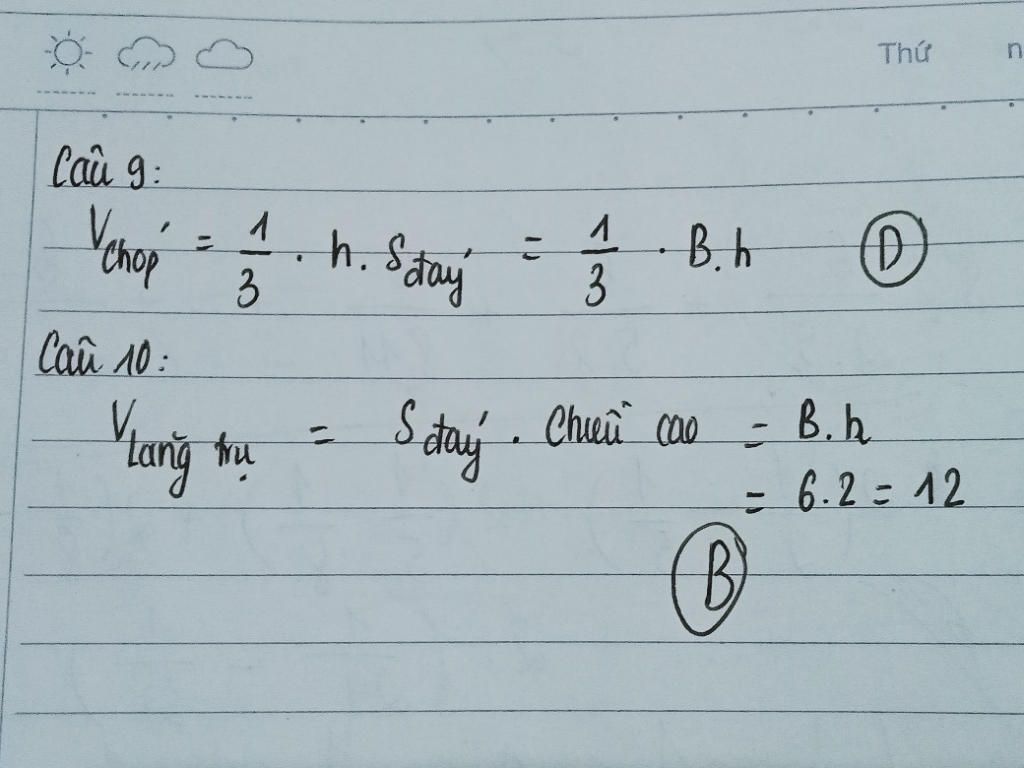 Thứ n
Câu 9:
V chóp = 1/3 . h . S đáy = 1/3 . B.h D
Câu 10:
V lăng trụ = S đáy . Chiều cao = B.h
= 6.2 = 12
B